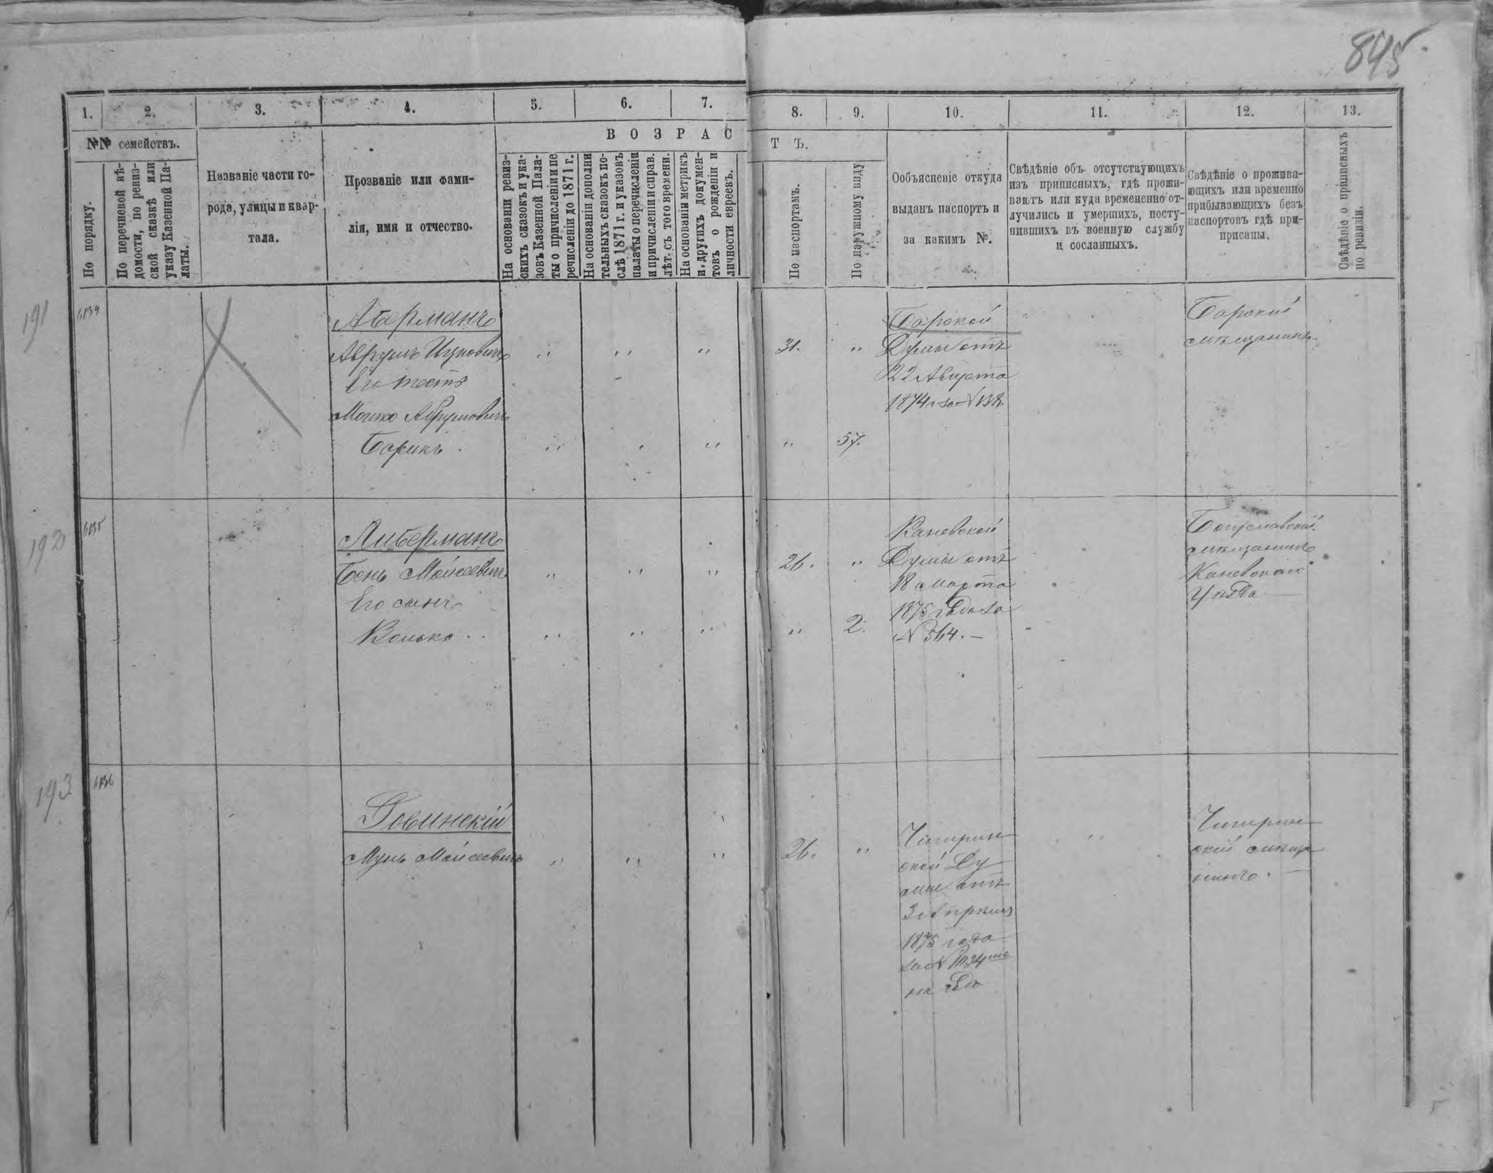 895
1. 2. 3. 4. 5. 6. 7. 8. 9. 10. 11. 12. 13.
№№ семействъ.
В О З Р А С Т Ъ.
По порядку.
По перечневой вѣ-
домости, по ревиз-
ской сказкѣ или
указу Казенной Па-
латы.
Названіе части го-
рода, улицы и квар-
тала.
Прозваніе или фами-
лія, имя и отчество.
На основаніи ревиз-
скихъ сказокъ и ука-
зовъ Казенной Пала-
ты о причисленіи и пе
речисленіи до 1871 г.
На основаніи дополни
тельныхъ сказокъ по-
слѣ 1871 г. и указовъ
палаты о перечисленіи
и причисленіи и справ.
лѣт. съ того времени.
На основаніи метрикъ
и, другихъ докумен-
товъ о рожденіи и
личности евреевъ.
По паспортамъ.
По наружному виду
Ообъясненіе откуда
выданъ паспортъ и
за какимъ №.
Свѣдѣніе объ отсутствующихъ
изъ приписныхъ, гдѣ прожи-
ваютъ или куда временно от-
лучились и умершихъ, посту-
пившихъ въ военную службу
и сосланныхъ.
Свѣдѣніе о прожива-
ющихъ или временно
прибывающихъ безъ
паспортовъ гдѣ при-
присаны.
Свѣдѣніе о приписныхъ
по ревизіи.
191
6134
Аберманъ
Аврумъ Ицковичъ
31.
Его тесть
Мошко Аврумовичъ
Барикъ
57.
Барской
Думы отъ
22 Августа
1874 г. за №
Барскій
мѣщанинъ
192
6135
Либерманъ
Бень Мойсеевичъ
26.
Его сынъ
Волько
2.
Каневской
Думы отъ
18 марта
1875 года за
№ 564.
Богуславскій
мѣщанинъ
Каневскаго
Уѣзда
193
6136
Ровинскій
Мунь Мойсеевичъ
26.
Чигирин-
ской Ду
мы отъ
3 Апрѣля
1875 года
за №
на годъ
Чигирин-
скій мѣща
нинъ.